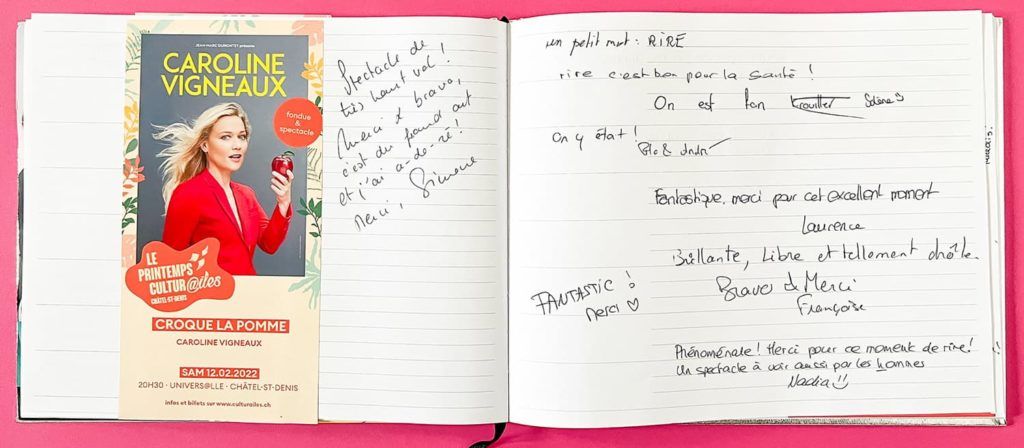 JEAN-MARC DUMONTET présente
CAROLINE
VIGNEAUX
fondue
&
spectacle
LE
PRINTEMPS
CULTUR@iles
CHÂTEL-ST-DENIS
CROQUE LA POMME
CAROLINE VIGNEAUX
SAM 12.02.2022
20H30 · UNIVERS@LLE · CHÂTEL-ST-DENIS
infos et billets sur www.culturailes.ch
Spectacle de
très haut vol !
Merci & bravo,
c'est du grand art
et j'ai a-do-ré !
Merci, Simone
un petit mot : RIRE
rire c'est bon pour la santé !
On est fan
On y était !
Fantastique, merci pour cet excellent moment
Laurence
Brillante, Libre et tellement drôle.
Bravo & Merci
Françoise
FANTASTIC !
merci ♡
Phénoménale ! Merci pour ce moment de rire !
Un spectacle à voir aussi par les hommes
Nadia